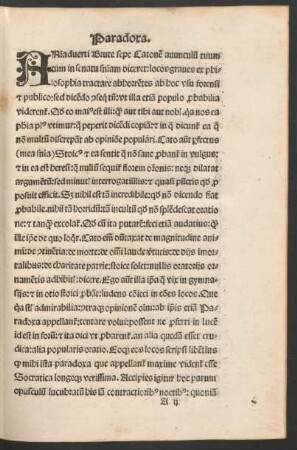 Paradoxa.
ANiaduerti Brute sepe Catonē auunculū tuum
cum in senatu sn̄iam diceret: locos graues ex phi
losophia tractare abhorrētes ab hoc vsu forensi
& publico: sed dicēdo ꝯseq̄ tn̄: vt illa etiā populo ꝓbabilia
viderent̄. Qd eo maiꝰ est illi: q̄ aut tibi aut nobis: qa nos ea
phia plꝰ vtimur: q̄ peperit dicēdi copiā: & in q̄ dicunt̄ ea q̄
nō multū discrepāt ab opinione populari. Cato aūt ꝑfectus
(mea sn̄ia) Stoicꝰ & ea sentit q̄ nō sane ꝓbant̄ in vulgus:
& in ea est heresi: q̄ nullū sequit̄ florem orōnis: neqꝫ dilatat
argumētū: sed minutꝭ interrogatiūculis: & quasi pūctis qd ꝓ
posuit efficit. Sꝫ nihil est tā incredibile: qd nō dicendo fiat
ꝓbabile. nihil tā horridū: tā incultū qd nō splēdescat oratio
ne: & tanqꝫ excolat̄. Qd cū ita putarē: feci etiā audatius: q̄
ille ip̄e de quo loq̄r. Cato em̄ dūtaxat de magnitudine ani
mi: de ꝯtinētia: de morte: de om̄i laude v̄tutis: de dijs im̄or
talibus: de charitate patrie: stoice solet: nullis oratorijs or
namētis adhibitꝭ: dicere. Ego aūt illa ip̄a q̄ vix in gymna
sijs: & in otio stoici ꝓbāt: ludens cōieci in cōes locos. Que
qa sūt admirabilia: ꝯtraqꝫ opinionē oīm: ab ip̄is etiā Pa
radoxa appellant̄: tentare volui: possent ne ꝓferri in lucē
id est in forū: & ita dici vt ꝓbarent̄. an alia quedā esset eru
dita: alia popularis oratio. Eoqꝫ eos locos scripsi libētius
q̄ mihi ista paradoxa que appellant̄ maxime vident̄ esse
Socratica longeqꝫ verissima. Accipies igitur hoc paruum
opusculū lucubratū his iā contractioribꝰ noctibꝰ: quoniā
A ij